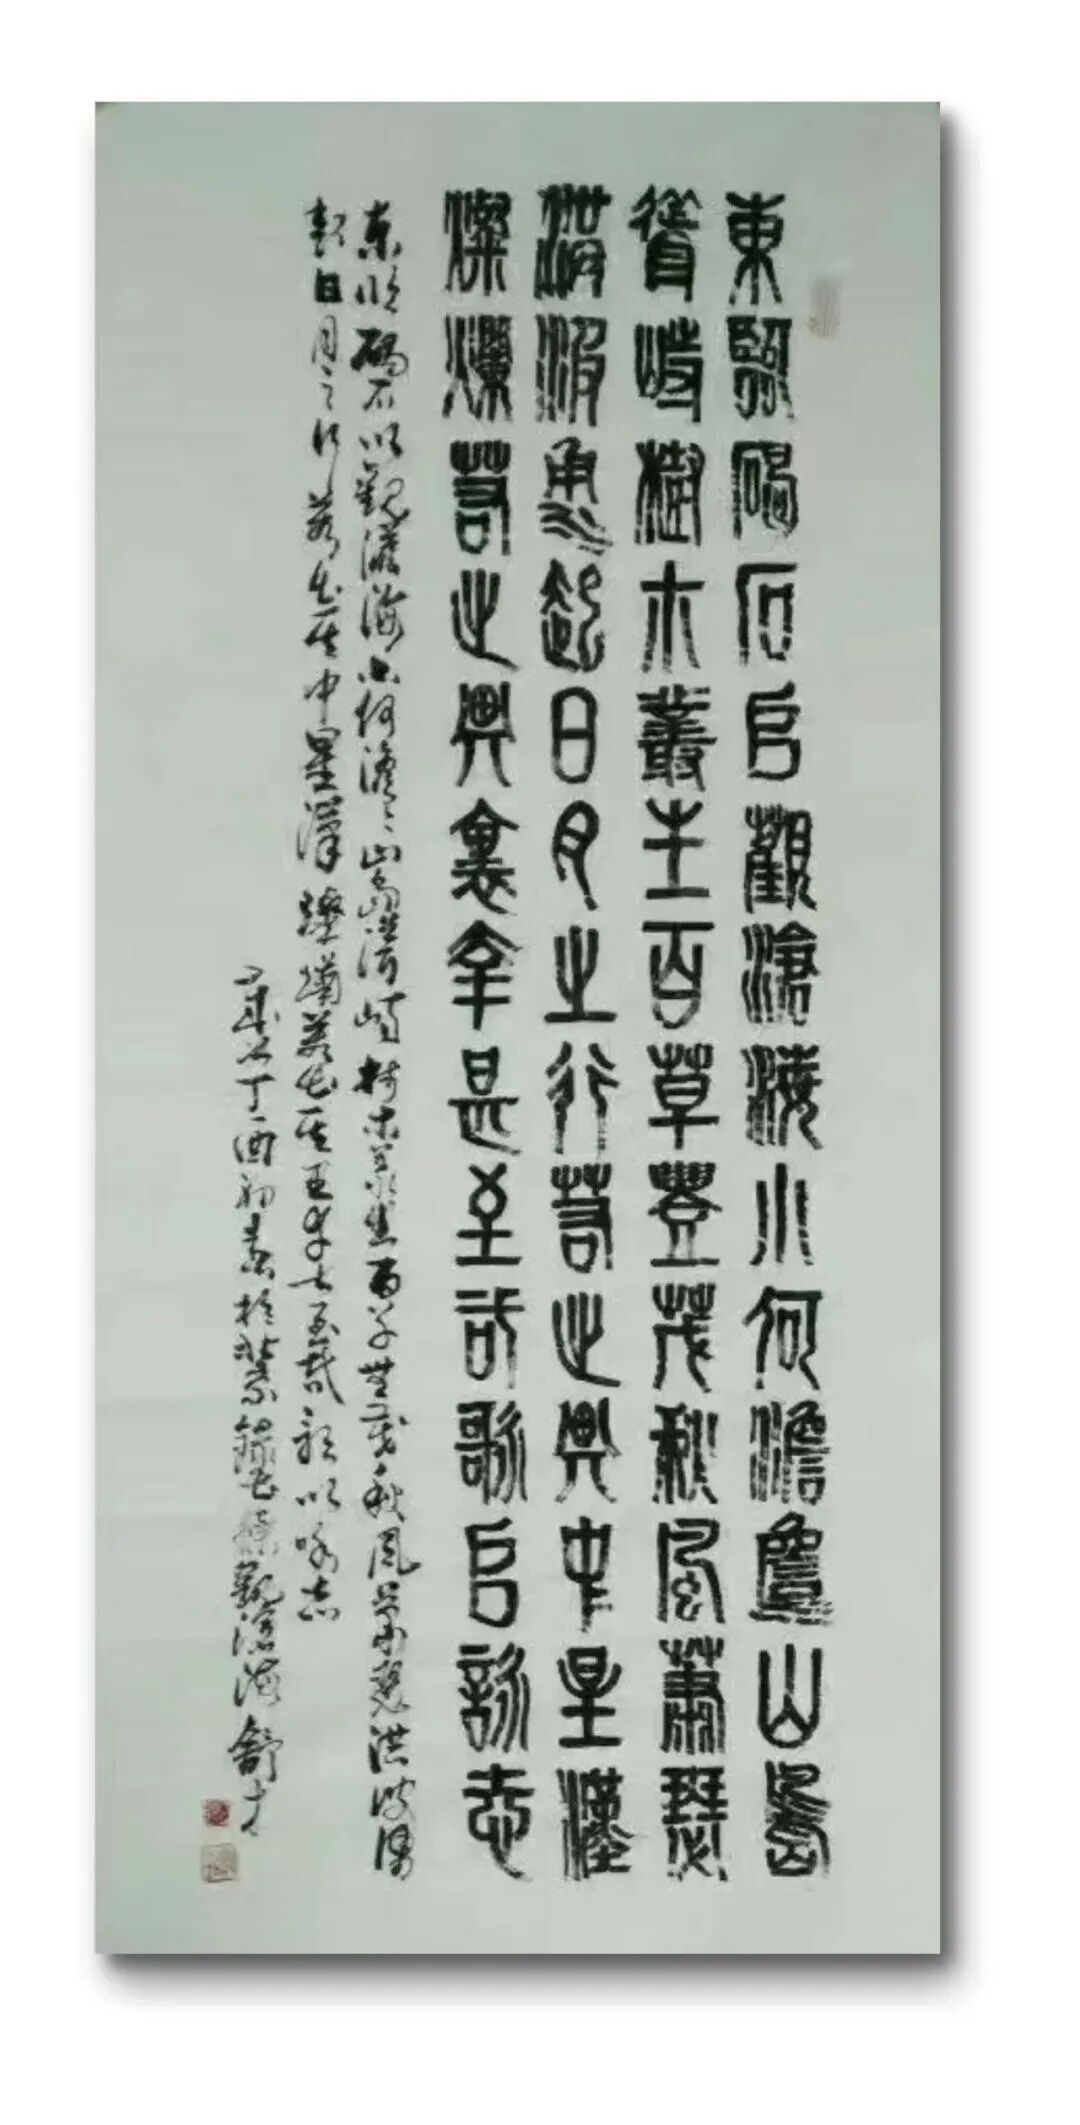 東臨碣石㠯觀滄海水何澹澹山島
竦峙樹木叢生百草豐茂秋風蕭瑟
洪波涌起日月之行若出其中星漢
燦爛若出其裏幸甚至哉歌㠯詠志
东临碣石以觀滄海水何澹〻山島竦峙樹木叢生百草豐茂秋風蕭瑟洪波涌
起日月之行若出其中星漢燦爛若出其里幸甚至哉歌以咏志
丁酉初春於 錄 觀滄海 舒